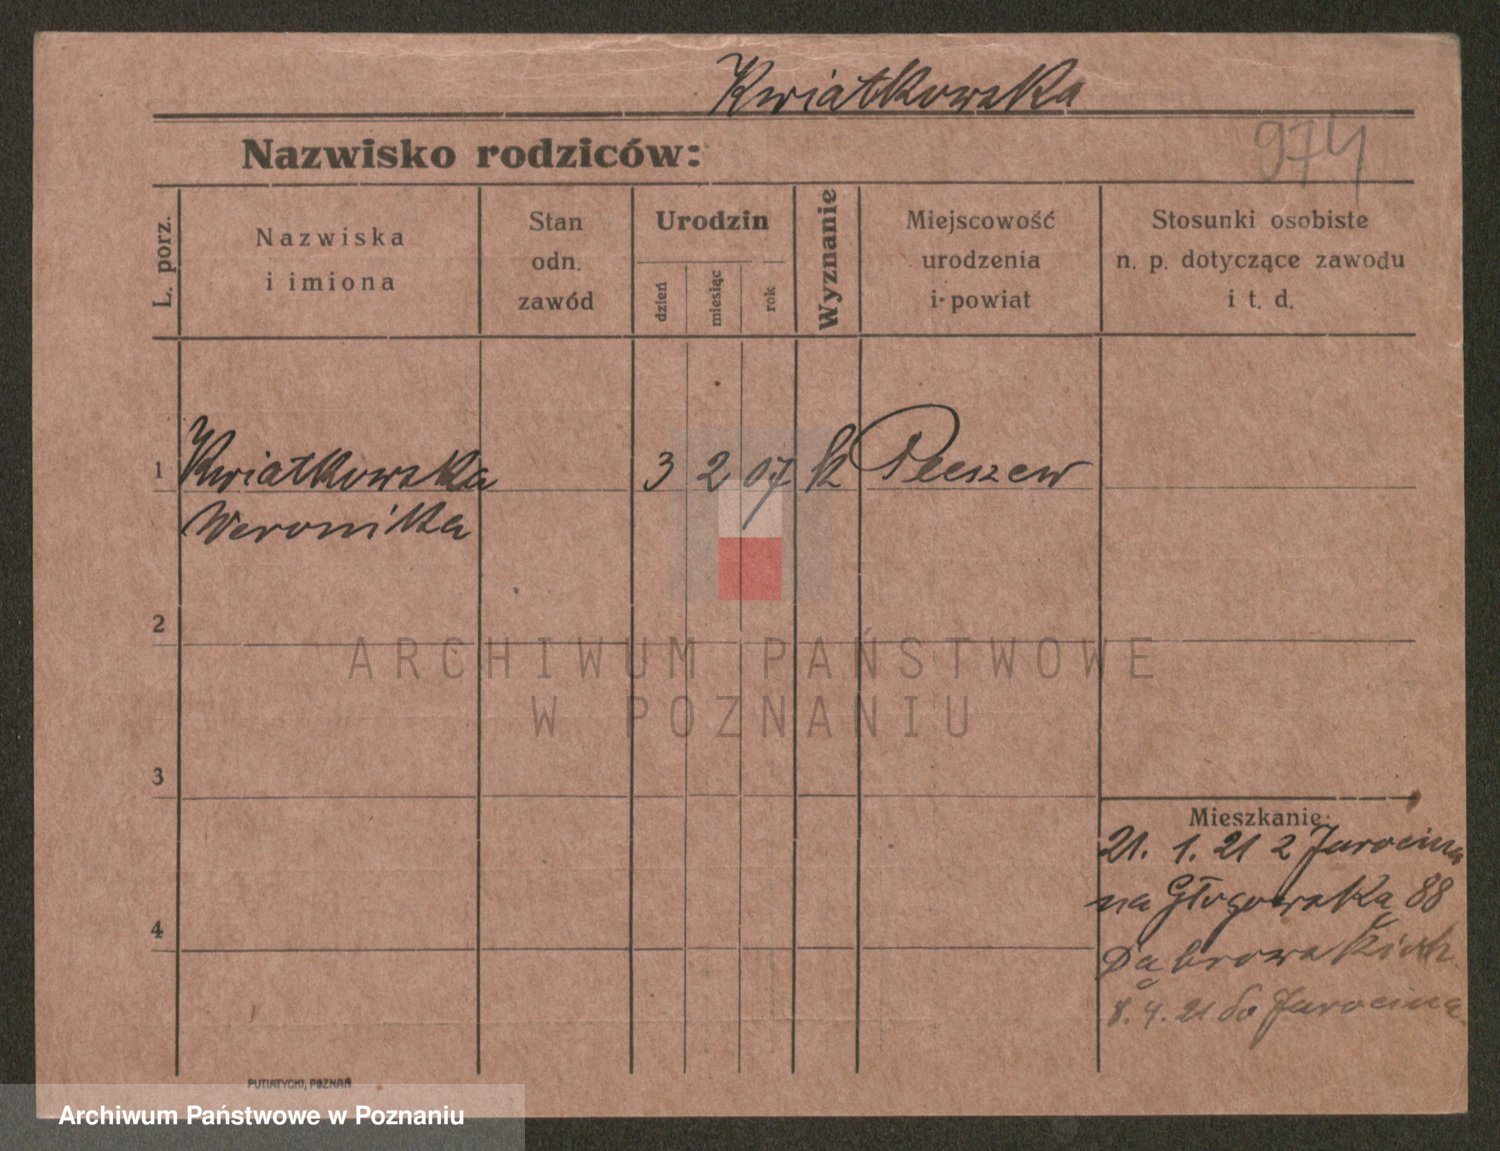 Kwiatkowska
974
Nazwisko rodziców:
L. porz.
Nazwiska
i imiona
Stan
odn.
zawód
Urodzin
dzień
miesiąc
rok
Wyznanie
Miejscowość
urodzenia
i powiat
Stosunki osobiste
n. p. dotyczące zawodu
i t. d.
1 Kwiatkowska 3 2 07 k Pleszew
Weronika
2
3
4
Mieszkanie:
21. 1. 21 z Jarocina
na Głogowska 88
Dąbrowskich
8. 4. 21 do Jarocina
ARCHIWUM PAŃSTWOWE
W POZNANIU
PUTIATYCKI, POZNAŃ
Archiwum Państwowe w Poznaniu